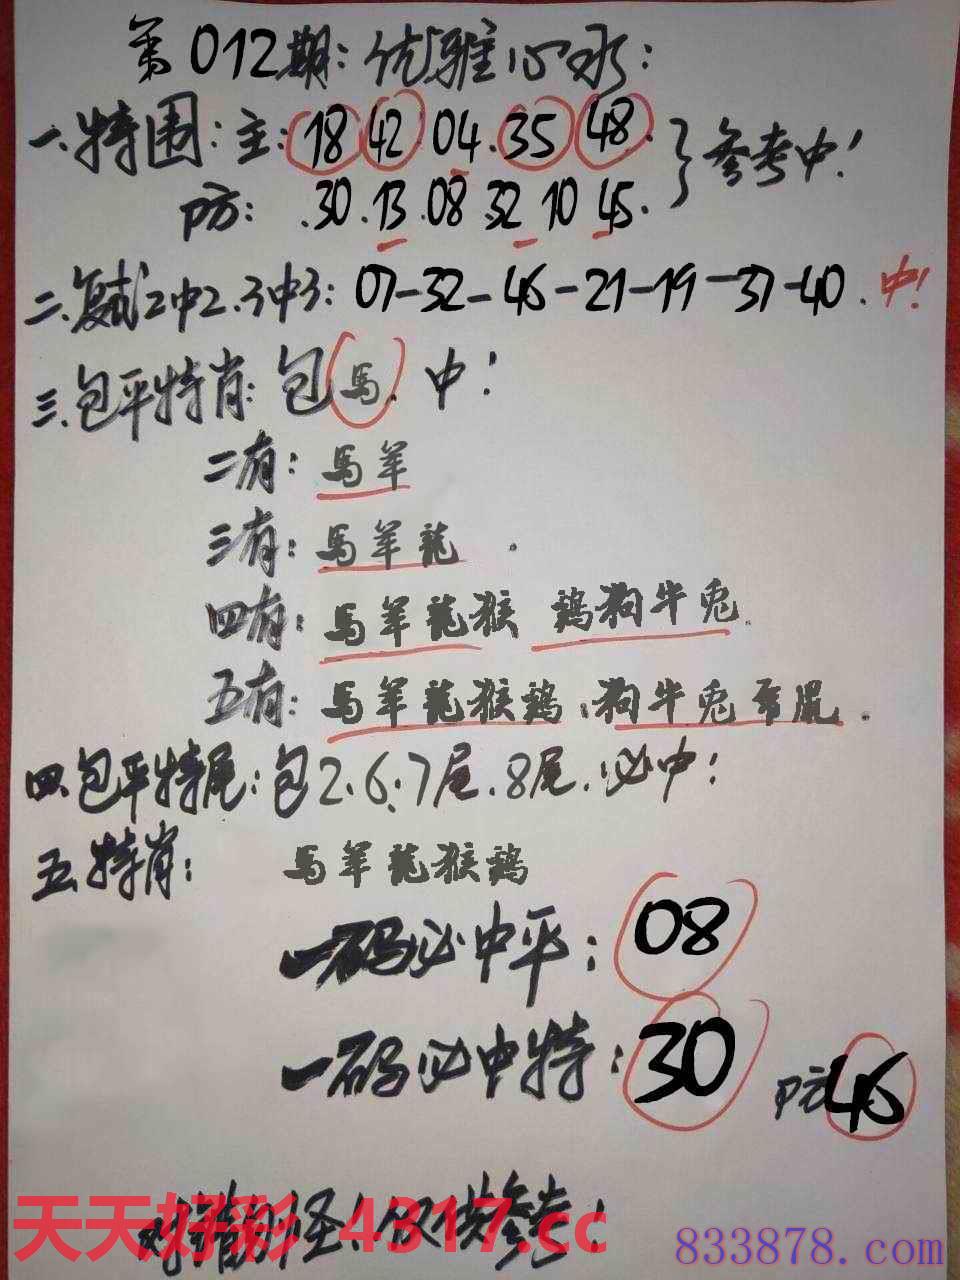 第012期:优雅心水:
一.特围:主:18 42 04.35 48.
防:.30.13.08 32 10 45.
}参考中!
二.复试2中2.3中3:07-32-46-21-19-37-40.中!
三.包平特肖:包馬.中!
二有:馬羊
三有:馬羊龍.
四有:馬羊龍猴 鷄狗牛兎.
五有:馬羊龍猴鷄.狗牛兎 鼠.
四.包平特尾:包2.6.7尾.8尾.必中!
五.特肖:馬羊龍猴鷄
一码必中平:08
一码必中特:30 防46
怪!仅供參考!
天天好彩 4317.cc
833878.com